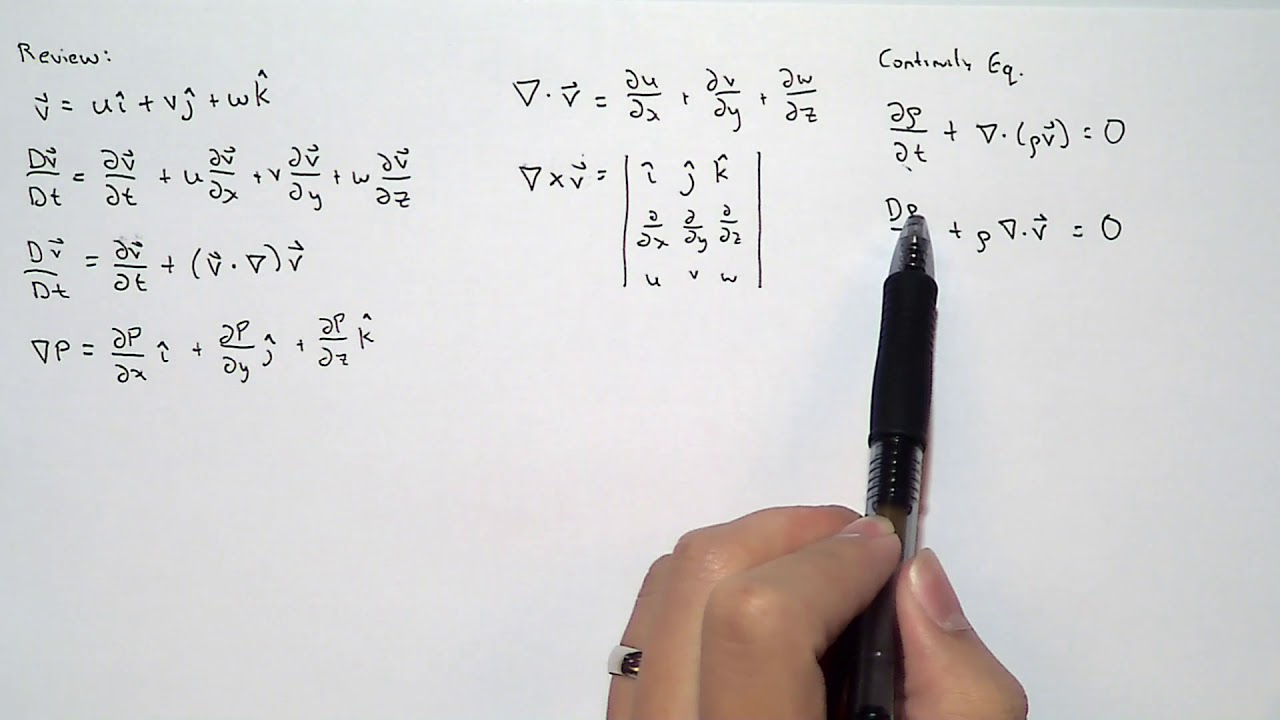 Review:
v⃗ = uî + vĵ + wk̂
Dv⃗/Dt = ∂v⃗/∂t + u ∂v⃗/∂x + v ∂v⃗/∂y + w ∂v⃗/∂z
Dv⃗/Dt = ∂v⃗/∂t + (v⃗·∇)v⃗
∇P = ∂P/∂x î + ∂P/∂y ĵ + ∂P/∂z k̂
∇·v⃗ = ∂u/∂x + ∂v/∂y + ∂w/∂z
∇×v⃗ = | î ĵ k̂ |
| ∂/∂x ∂/∂y ∂/∂z |
| u v w |
Continuity Eq.
∂ρ/∂t + ∇·(ρv⃗) = 0
Dρ + ρ∇·v⃗ = 0